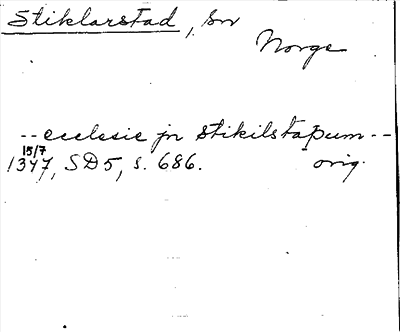 Stiklarstad, sn
Norge
-- ecclesie jn Stikilstaþum --
15/7
1347, SD5, s. 686. orig.